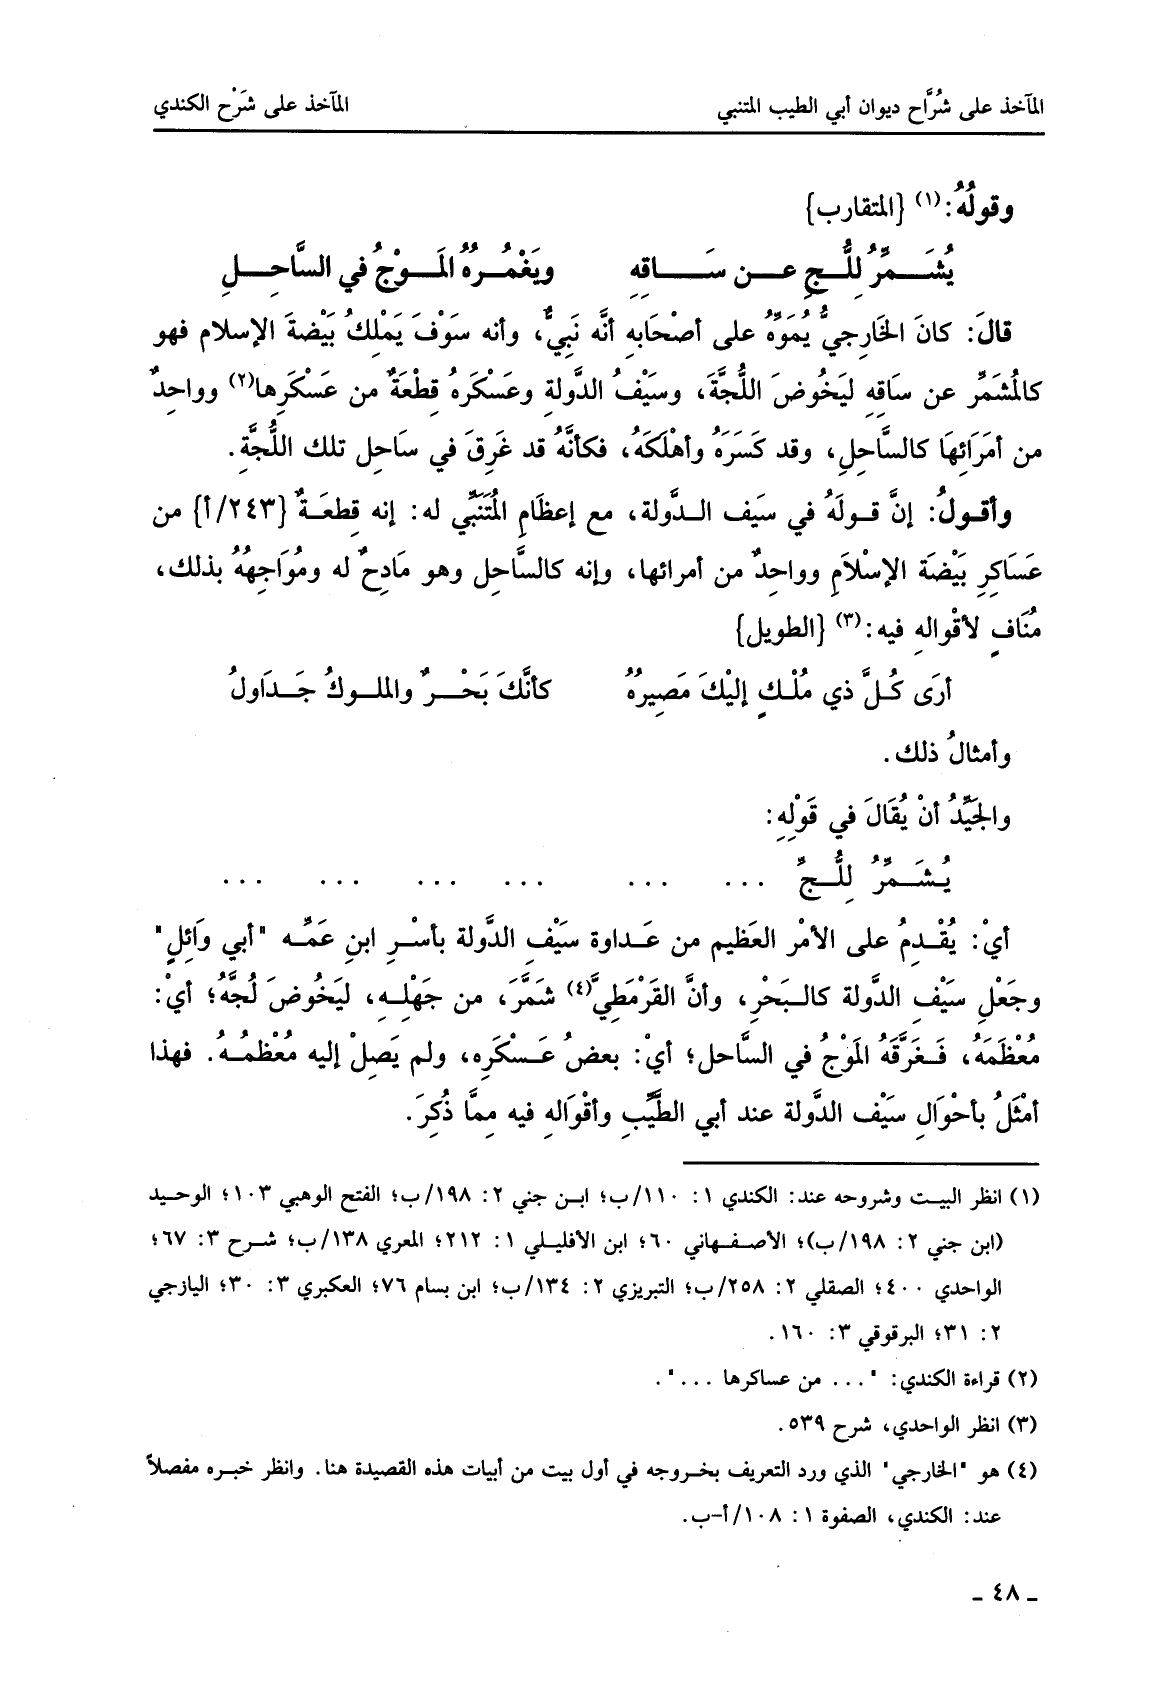 المآخذ على شُرَّاح ديوان أبي الطيب المتنبي المآخذ على شَرْح الكندي
وقولُهُ:(١) {المتقارب}
يُشَـــمِّرُ لِلُّــجِّ عــن سَـــاقِهِ ويَغْمُــرُهُ المَــوْجُ في السَّاحِــلِ
قالَ: كانَ الخارجيُّ يُمَوِّهُ على أصْحَابِهِ أنَّه نَبِيٌّ، وأنه سَوْفَ يَمْلِكُ بَيْضةَ الإسلام فهو
كالمُشَمِّرِ عن سَاقِهِ ليَخُوضَ اللُّجَّةَ، وسَيْفُ الدَّولةِ وعَسْكَرهُ قِطْعَةٌ من عَسْكَرِها(٢) وواحِدٌ
من أمَرَائِهَا كالسَّاحِلِ، وقد كَسَرَهُ وأهْلَكَهُ، فكأنَّهُ قد غَرِقَ في سَاحِلِ تلك اللُّجَّةِ.
وأقـولُ: إنَّ قـولَهُ في سَيَف الـدَّولة، مع إعظَامِ المُتَنَبِّي له: إنه قِطعَـةٌ {٢٤٣/أ} من
عَسَاكِرِ بَيْضَة الإسْلَامِ وواحِدٌ من أمرائها، وإنه كالسَّاحل وهو مَادِحٌ له ومُوَاجِهُهُ بذلك،
مُنَافٍ لأقْوالهِ فيه:(٣) {الطويل}
أرَى كُـلَّ ذي مُلْـكٍ إليْكَ مَصِيرهُ كأنَّكَ بَحْــرٌ والملـوكُ جَـدَاولُ
وأمثالُ ذلك.
والجَيِّدُ أنْ يُقَالَ في قَوْلِهِ:
يُـشَــمِّرُ لِلُّــجِّ ... ... ... ... ... ...
أيْ: يُقْـدِمُ على الأمْر العَظيم من عَـداوة سَيْفِ الدَّولة بأسْـرِ ابنِ عَمِّـه "أبي وَائِلٍ"
وجَعْلِ سَيْفِ الدَّولة كالـبَحْرِ، وأنَّ القَرْمَطِيَّ(٤) شَمَّرَ، من جَهْلِـهِ، ليَخُوضَ لُجَّهُ؛ أي:
مُعْظَمَهُ، فَـغَرَّقَهُ المَوْجُ في السَّاحل؛ أيْ: بعضُ عَـسْكَرِه، ولم يَصِلْ إليه مُعْظمُـهُ. فهذا
أمْثَلُ بأحْوَالِ سَيْفِ الدَّولة عند أبي الطَّيِّبِ وأقْوَالهِ فيه مِمَّا ذُكِرَ.
(١) انظر البيـت وشروحه عند: الكندي ١: ١١٠/ب؛ ابـن جني ٢: ١٩٨/ب؛ الفتح الوهبي ١٠٣؛ الوحـيد
(ابن جني ٢: ١٩٨/ب)؛ الأصـفـهاني ٦٠؛ ابن الأفليـلي ١: ٢١٢؛ المعري ١٣٨/ب؛ شـرح ٣: ٦٧؛
الواحدي ٤٠٠؛ الصقلي ٢: ٢٥٨/ب؛ التبريزي ٢: ١٣٤/ب؛ ابن بسام ٧٦؛ العكبري ٣: ٣٠؛ اليازجي
٢: ٣١؛ البرقوقي ٣: ١٦٠.
(٢) قراءة الكندي: "... من عساكرها ...".
(٣) انظر الواحدي، شرح ٥٣٩.
(٤) هو "الخارجي" الذي ورد التعريف بخـروجه في أول بيت من أبيات هذه القصيدة هنا. وانظر خبـره مفصلاً
عند: الكندي، الصفوة ١: ١٠٨/أ-ب.
ـ ٤٨ ـ